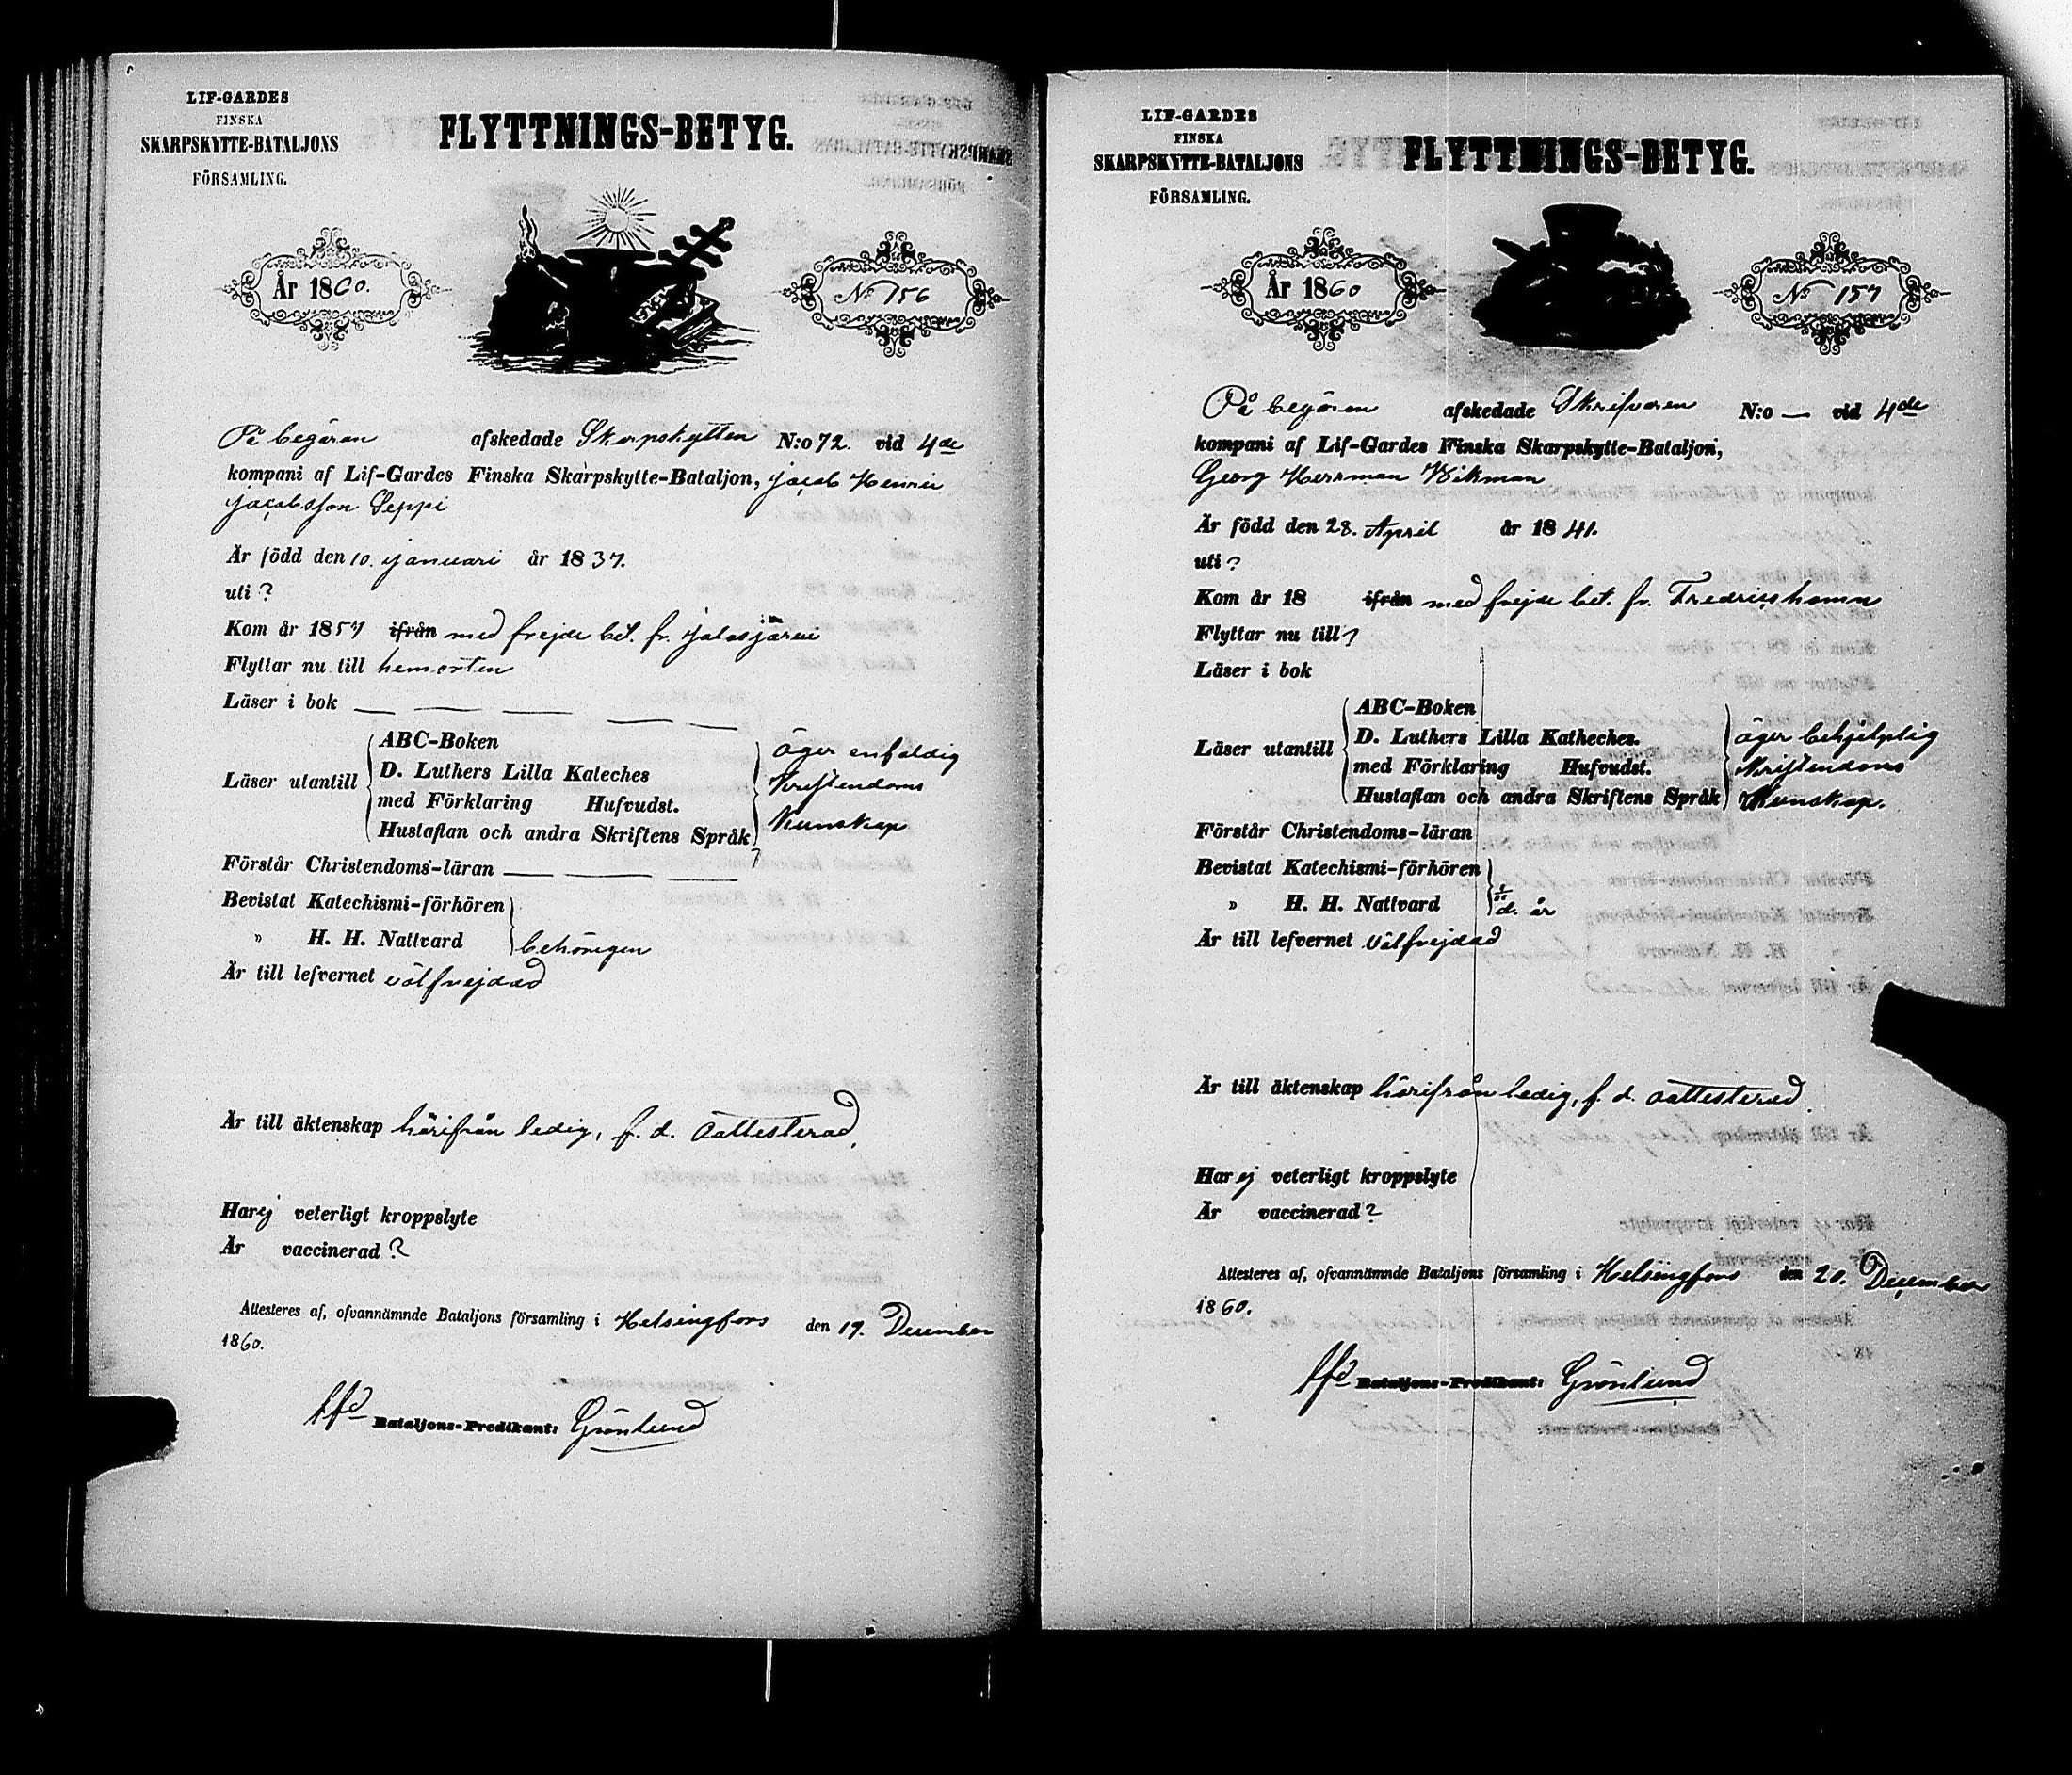 LIF-GARDES
FINSKA
SKARPSKYTTE-BATALJONS
FÖRSAMLING.
FLYTTNINGS-BETYG.
År 1860.
No 156
På begäran afskedade Skarpskytten N:o 72. vid 4de
kompani af Lif-Gardes Finska Skarpskytte-Bataljon, Jacob Henric
Jacobsson Seppi
Är född den 10. Januari år 1837.
uti ?
Kom år 1857 ifrån med frejde bet. fr. Jalasjärvi
Flyttar nu till hemorten
Läser i bok
Läser utantill
ABC-Boken
D. Luthers Lilla Kateches
med Förklaring Hufvudst.
Hustaflan och andra Skriftens Språk
äger enfaldig
Kristendoms
Kunskap
Förstår Christendoms-läran
Bevistat Katechismi-förhören
» H. H. Nattvard
behörigen
Är till lefvernet välfrejdad
Är till äktenskap härifrån ledig, f. d. oattesterad.
Har ej veterligt kroppslyte
Är vaccinerad ?
Attesteres af, ofvannämnde Bataljons församling i Helsingfors den 19. December
1860.
Bataljons-Predikant: Grönlund
LIF-GARDES
FINSKA
SKARPSKYTTE-BATALJONS
FÖRSAMLING.
FLYTTNINGS-BETYG.
År 1860
No 157
På begäran afskedade Skrifvaren N:o — vid 4de
kompani af Lif-Gardes Finska Skarpskytte-Bataljon,
Georg Herrman Wikman
Är född den 28. April år 1841.
uti ?
Kom år 18 ifrån med frejde bet. fr. Fredricshamn
Flyttar nu till ?
Läser i bok
Läser utantill
ABC-Boken
D. Luthers Lilla Katheches.
med Förklaring Hufvudst.
Hustaflan och andra Skriftens Språk
äger behjelplig
Kristendoms
Kunskap.
Förstår Christendoms-läran
Bevistat Katechismi-förhören
» H. H. Nattvard
d. år
Är till lefvernet välfrejdad
Är till äktenskap härifrån ledig, f. d. oattesterad.
Har ej veterligt kroppslyte
Är vaccinerad ?
Attesteres af, ofvannämnde Bataljons församling i Helsingfors den 20. December
1860.
Bataljons-Predikant: Grönlund